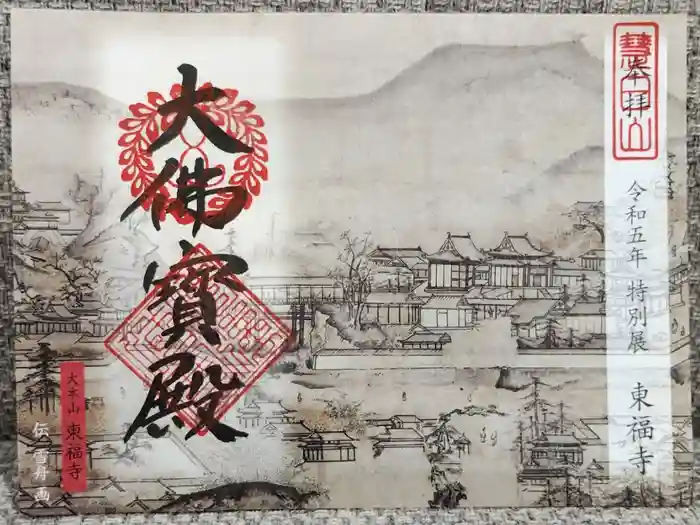 奉拝
慧日山
令和五年 特別展
東福寺
大佛寳殿
大本山 東福寺
伝 雪舟 画